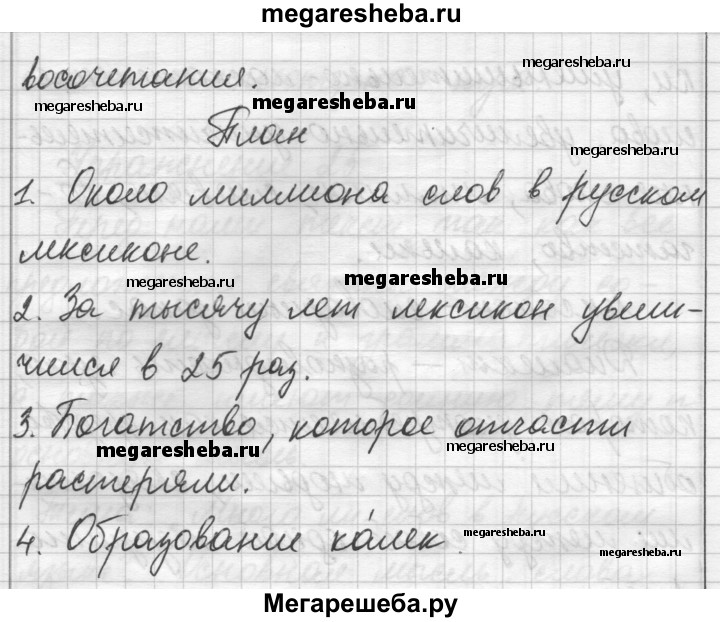 megaresheba.ru
восочетания.
megaresheba.ru
megaresheba.ru
megaresheba.ru
План
megaresheba.ru
1. Около миллиона слов в русском
лексиконе.
megaresheba.ru
megaresheba.ru
2. За тысячу лет лексикон увели-
чился в 25 раз.
3. Богатство, которое отчасти
megaresheba.ru
megaresheba.ru
растеряли.
4. Образование ка́лек.
megaresheba.ru
megaresheba.ru
Мегарешеба.ру